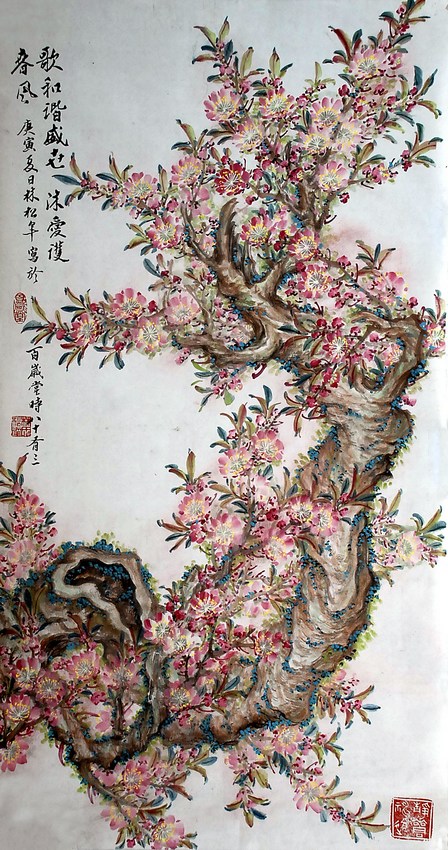 歌和谐盛世 沐爱护
春风
庚寅夏日林松年写於
百岁堂时八十有三